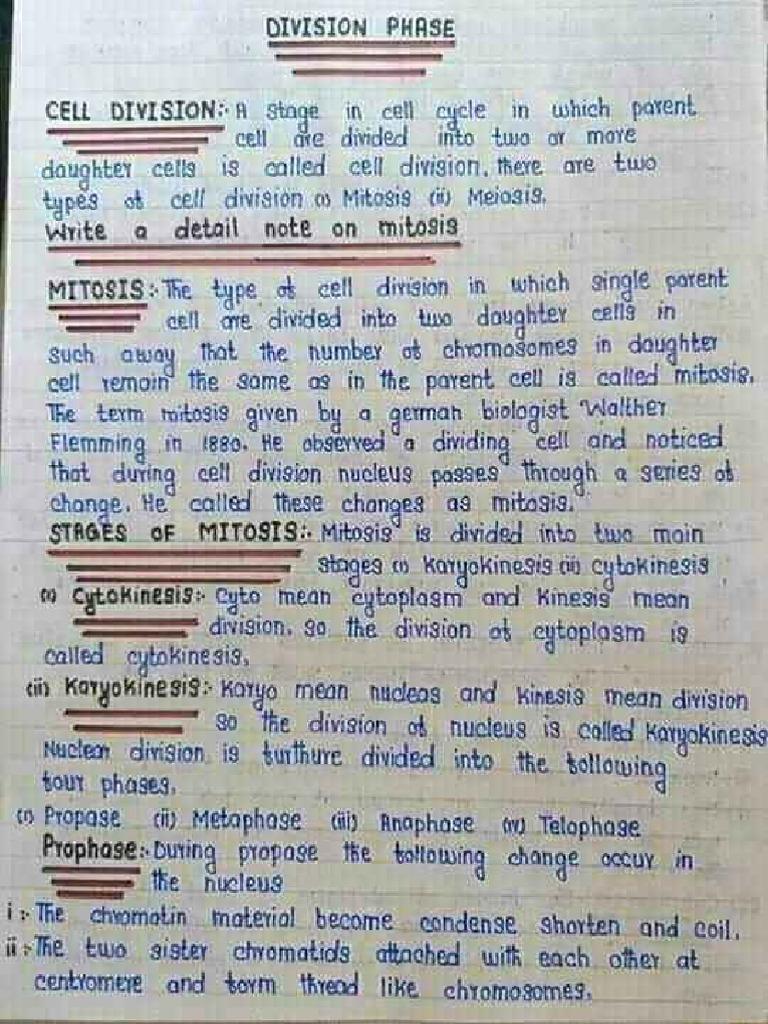 DIVISION PHASE
CELL DIVISION:- A stage in cell cycle in which parent
cell are divided into two or more
daughter cells is called cell division. there are two
types of cell division (i) Mitosis (ii) Meiosis.
Write a detail note on mitosis
MITOSIS:- The type of cell division in which single parent
cell are divided into two daughter cells in
Such away that the number of chromosomes in daughter
cell remain the same as in the parent cell is called mitosis.
The term mitosis given by a german biologist Walther
Flemming in 1880. He observed a dividing cell and noticed
that during cell division nucleus passes through a series of
change. He called these changes as mitosis.
STAGES OF MITOSIS:- Mitosis is divided into two main
stages (i) Karyokinesis (ii) cytokinesis
(i) Cytokinesis:- Cyto mean cytoplasm and kinesis mean
division. so the division of cytoplasm is
called cytokinesis.
(ii) Karyokinesis:- Karyo mean nucleas and kinesis mean division
so the division of nucleus is called Karyokinesis
Nuclear division is furthure divided into the following
four phases.
(i) Propase (ii) Metaphase (iii) Anaphase (iv) Telophase
Prophase:- During propase the following change occur in
the nucleus
i:- The chromatin material become condense shorten and coil.
ii:- The two sister chromatids attached with each other at
centromere and form thread like chromosomes.